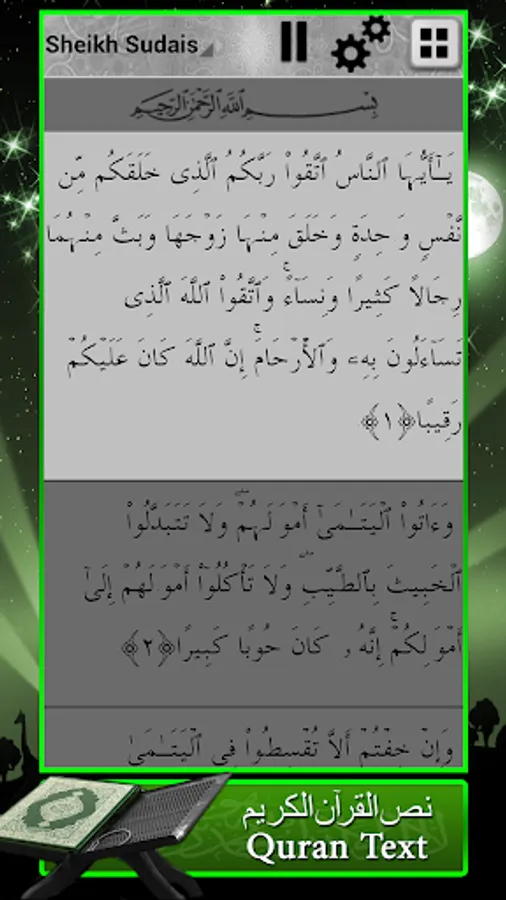 Sheikh Sudais
بِسْمِ اللَّهِ الرَّحْمَٰنِ الرَّحِيمِ
يَـٰٓأَيُّهَا ٱلنَّاسُ ٱتَّقُوا۟ رَبَّكُمُ ٱلَّذِى خَلَقَكُم مِّن
نَّفْسٍ وَ حِدَةٍ وَخَلَقَ مِنْهَا زَوْجَهَا وَبَثَّ مِنْهُمَا
رِجَالًا كَثِيرًا وَنِسَآءً ۚ وَٱتَّقُوا۟ ٱللَّهَ ٱلَّذِى
تَسَآءَلُونَ بِهِۦ وَٱلْأَرْحَامَ ۚ إِنَّ ٱللَّهَ كَانَ عَلَيْكُمْ
رَقِيبًا ﴿١﴾
وَءَاتُوا۟ ٱلْيَتَـٰمَىٰٓ أَمْوَ لَهُمْ ۖ وَلَا تَتَبَدَّلُوا۟
ٱلْخَبِيثَ بِٱلطَّيِّبِ ۖ وَلَا تَأْكُلُوٓا۟ أَمْوَ لَهُمْ إِلَىٰٓ
أَمْوَ لِكُمْ ۚ إِنَّهُۥ كَانَ حُوبًا كَبِيرًا ﴿٢﴾
وَإِنْ خِفْتُمْ أَلَّا تُقْسِطُوا۟ فِى ٱلْيَتَـٰمَىٰ
نص القرآن الكريم
Quran Text